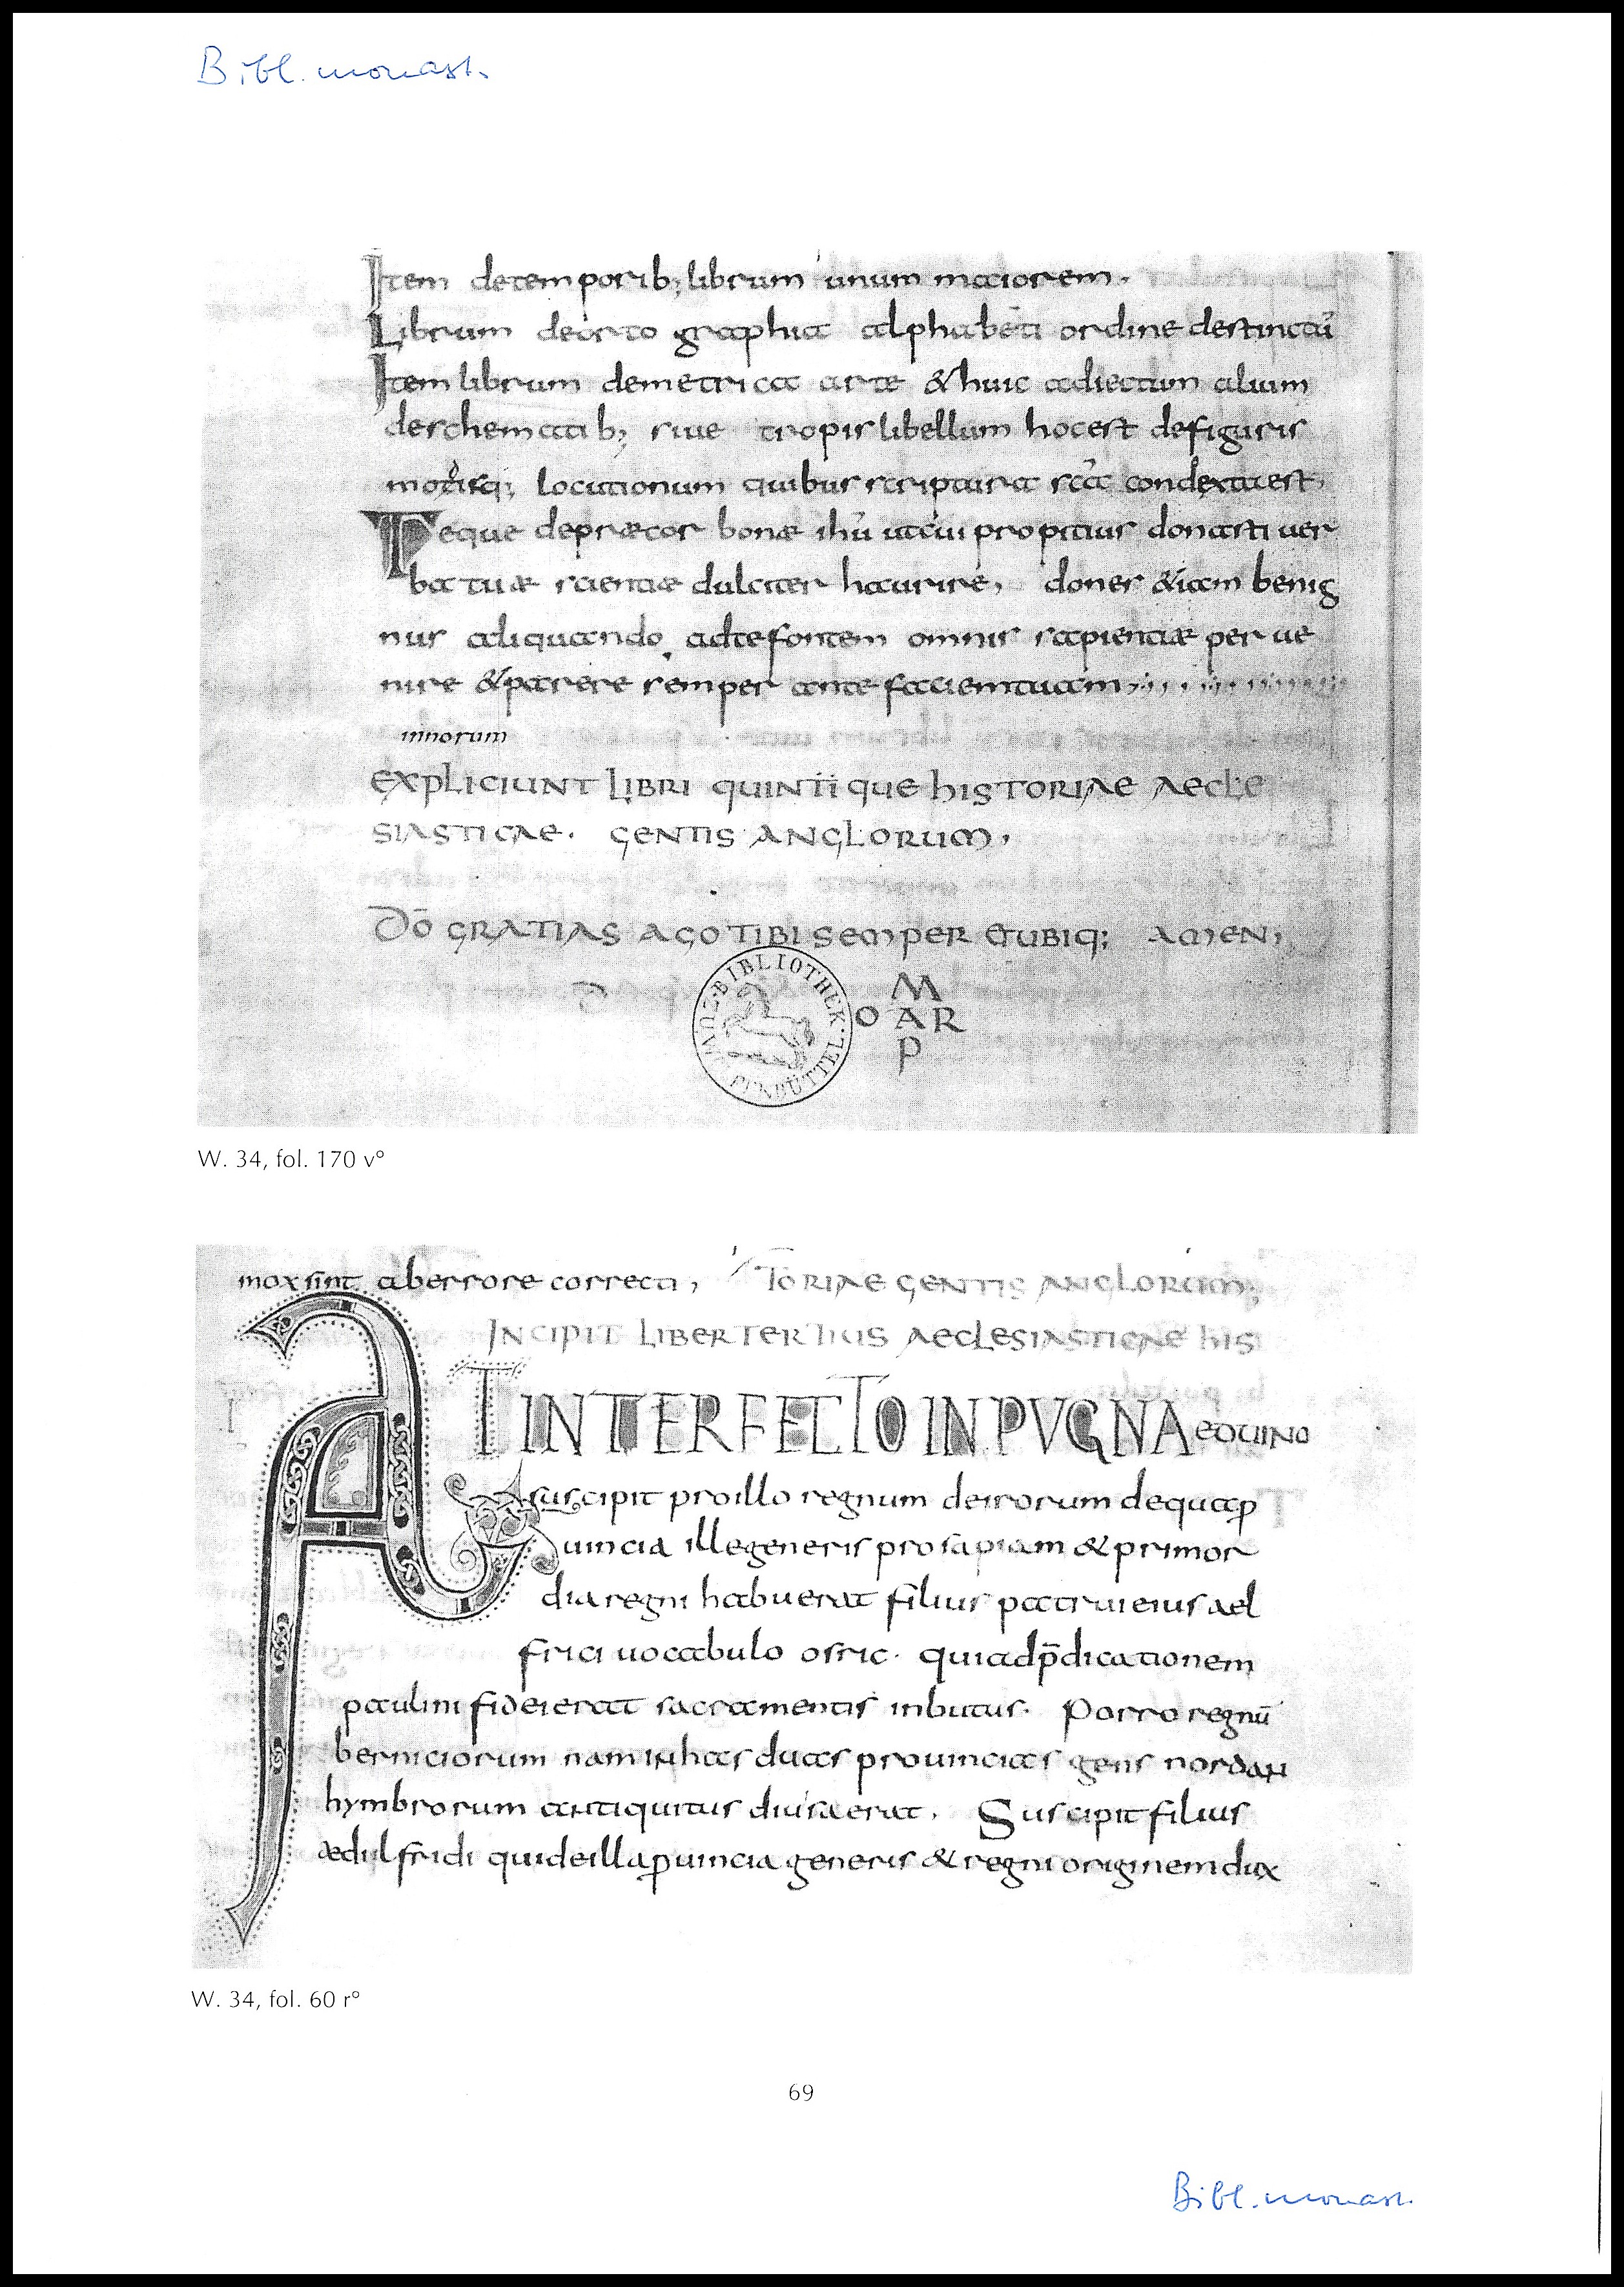 Bibl. monast.
Item detemporib; librum unum maiorem.
Librum deorto graphia alphabeti ordine destinctū
Item librum demetrica arte & huic adiectum alium
deschematib; siue tropis libellum hocest defiguris
locutionum quibus scriptura scā condextaest,
Teque depræcor bonæ ihū utcui propitius donasti uer
ba tuæ scientiæ dulciter haurire, dones &iam benig
nus aliquando adtefontem omnis sapientiæ perue
nire &parere semper ante faciemtuam
innorum
EXPLICIUNT LIBRI QUINTI QUE HISTORIAE AECLE
SIASTICAE. GENTIS ANGLORUM,
DŌ GRATIAS AGO TIBI SEMPER ETUBIQ; AMEN,
BIBLIOTHEK
M
O AR
P
W. 34, fol. 170 v°
mox sint aberrore correcti, TORIAE GENTIS ANGLORUM;
INCIPIT LIBER TERTIUS AECLESIASTICAE HIS
AT INTERFECTO IN PVGNA EDUINO
suscipit proillo regnum deirorum dequap
uincia illegeneris prosapiam & primor
dia regni habuerat filius patrui eius ael
frici uocabulo osric. quiadp̄dicationem
paulini fidei erat sacramentis inbutus. Porro regnū
berniciorum nam inhas duas prouincias gens nordan
hymbrorum antiquitus diuisaerat. Suscipit filius
ædilfridi quideillapuincia generis & regni originem dux
W. 34, fol. 60 r°
69
Bibl. monast.